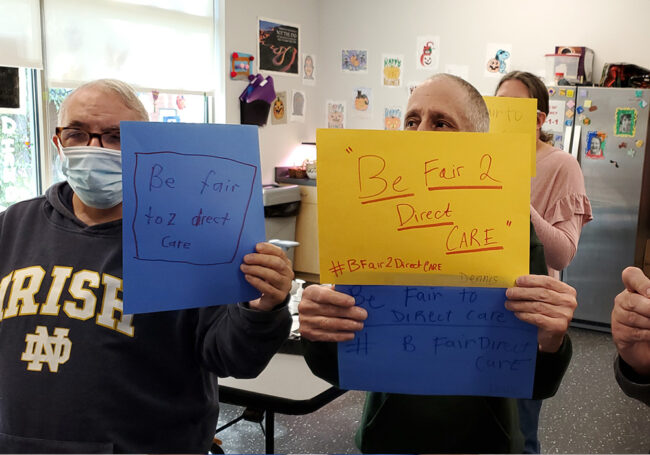 IRISH
ND
Be fair
to 2 direct
care
"Be Fair 2
Direct
CARE"
#BFair2DirectCARE
Dennis
Be Fair to
Direct care
# B FairDirect
Care